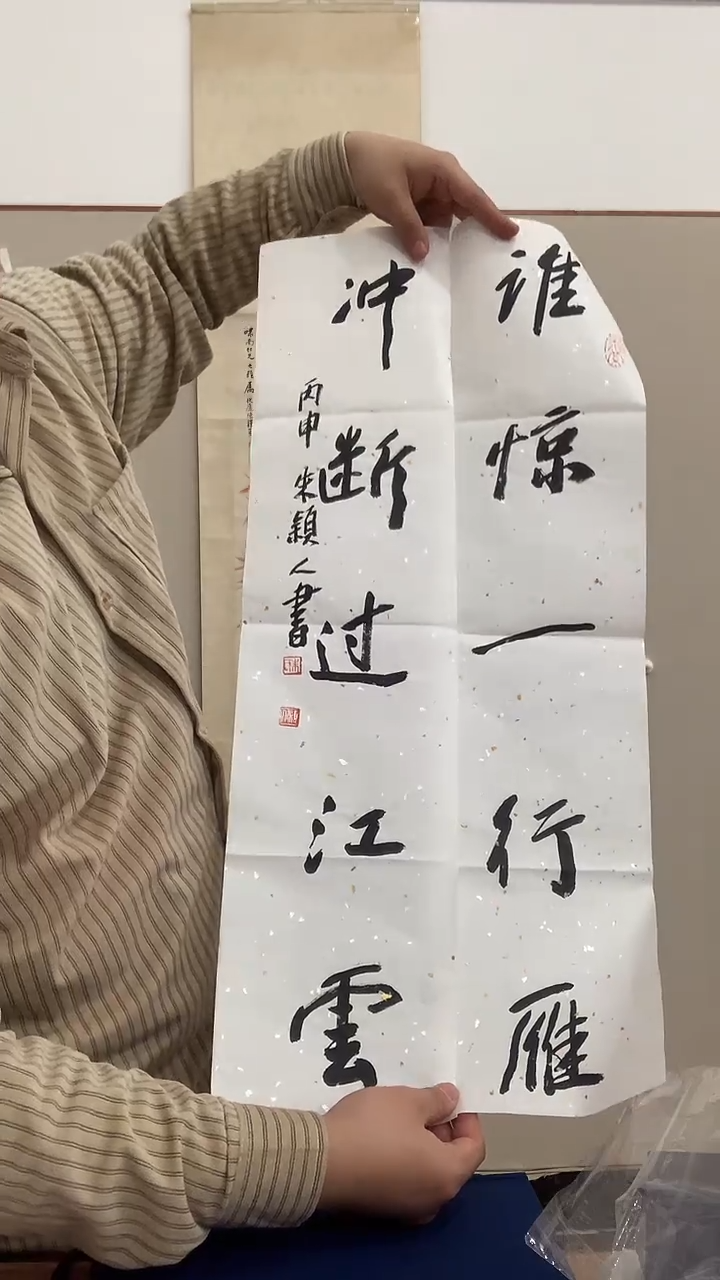 谁惊一行雁
冲断过江雲
丙申 朱颖人書